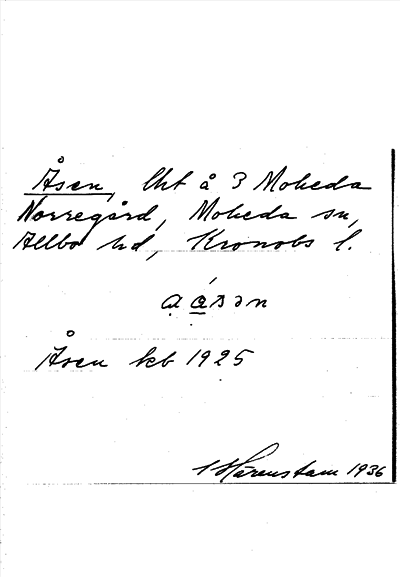 Åsen, lht å 3 Moheda
Norregård, Moheda sn,
Allbo hd, Kronobs l.
Åsen kb 1925
Härenstam 1936